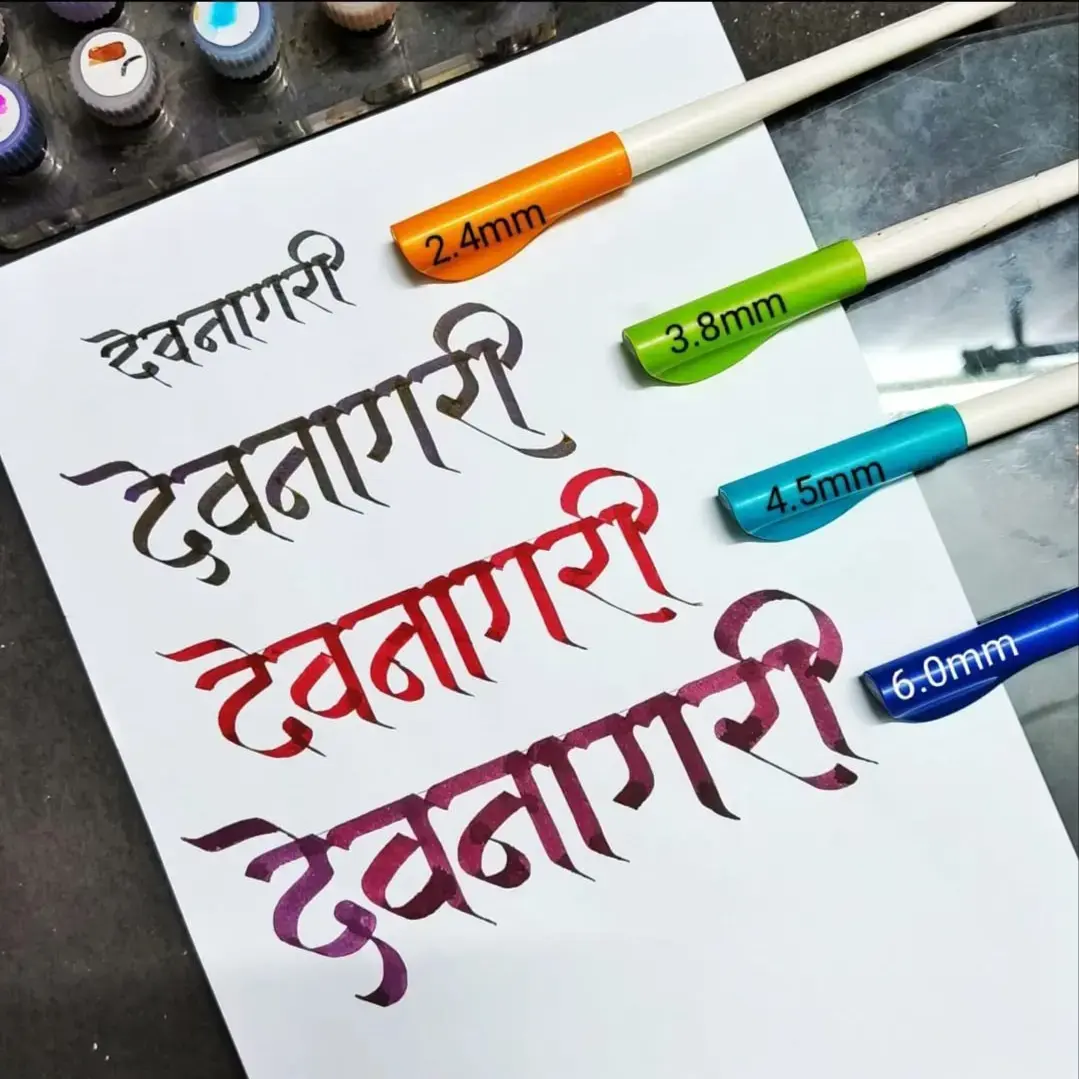 देवनागरी
2.4mm
देवनागरी
3.8mm
देवनागरी
4.5mm
देवनागरी
6.0mm